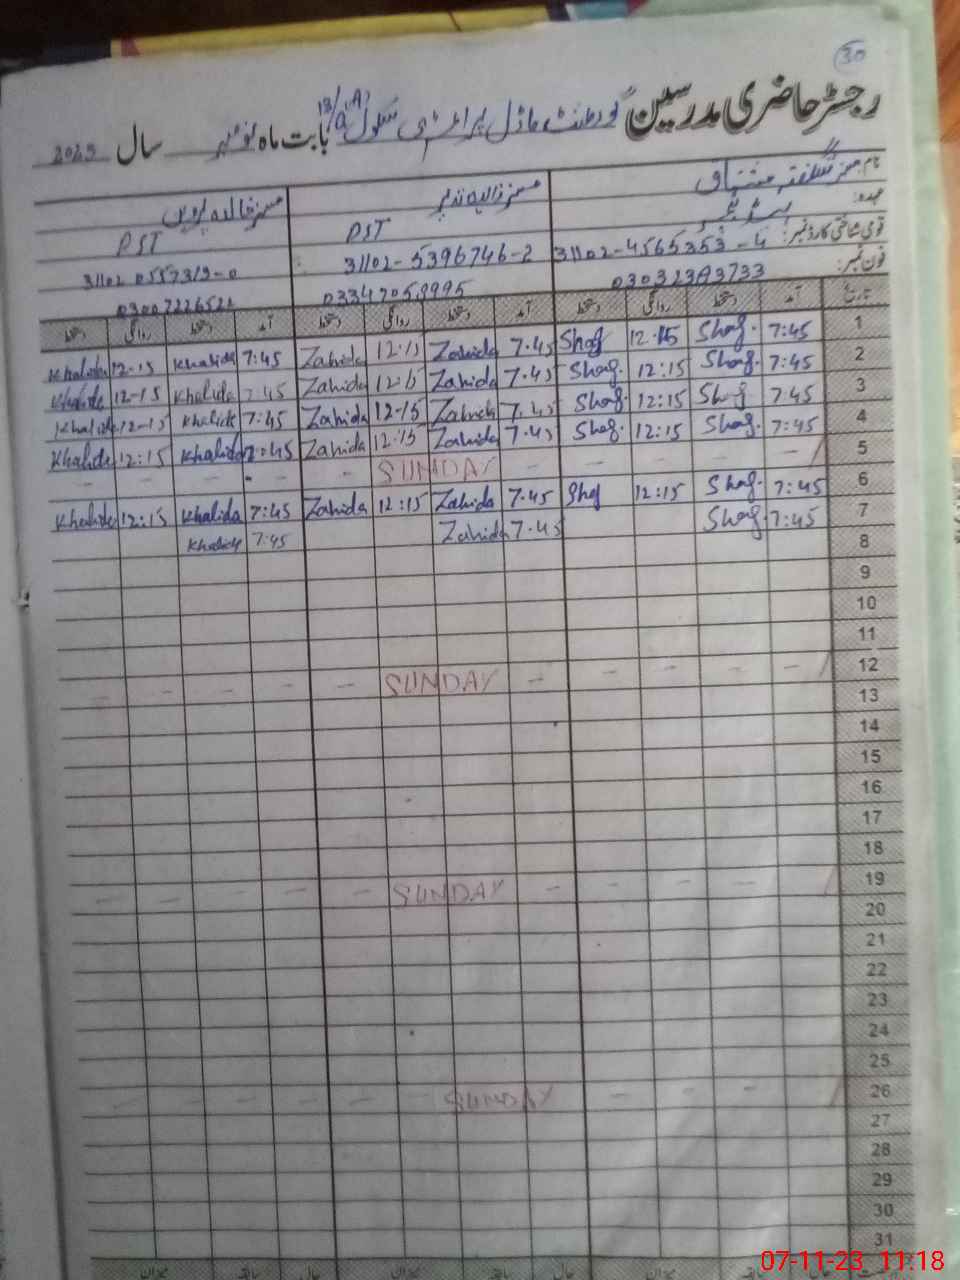 30
رجسٹر حاضری مدرسین گورنمنٹ ماڈل پرائمری سکول 18/A بابت ماہ نومبر سال 2023
نام: مسز شگفتہ مشتاق مسز زاہدہ نذیر مسز خالدہ پروین
عہدہ: ہیڈ ٹیچر PST PST
قومی شناختی کارڈ نمبر: 31102-4565353-4 31102-5396746-2 31102 0557319-0
فون نمبر: 03032393733 0334 7058995 03007226521
تاریخ آمد دستخط روانگی دستخط آمد دستخط روانگی دستخط آمد دستخط روانگی دستخط
Khalida 12-15 Khalida 7:45 Zahida 12-15 Zahida 7.45 Shag 12.15 Shag. 7:45 1
Khalida 12-15 Khalida 7:45 Zahida 12-15 Zahida 7.45 Shag. 12:15 Shag. 7:45 2
Khalida 12-15 Khalida 7:45 Zahida 12-15 Zahida 7.45 Shag. 12:15 Shag 7 45 3
Khalida 12:15 Khalida 7:45 Zahida 12:15 Zahida 7.45 Shag. 12:15 Shag. 7:45 4
- - - - - SUNDAY - - - - 5
Khalida 12:15 Khalida 7:45 Zahida 12:15 Zahida 7.45 Shag 12:15 Shag. 7:45 6
Khalida 7:45 Zahida 7.45 Shag. 7:45 7
8
9
10
11
- - - - - SUNDAY - - - - 12
13
14
15
16
17
18
- - - - - SUNDAY - - - - 19
20
21
22
23
24
25
- - - - - SUNDAY - - - - 26
27
28
29
30
31
07-11-23 11:18